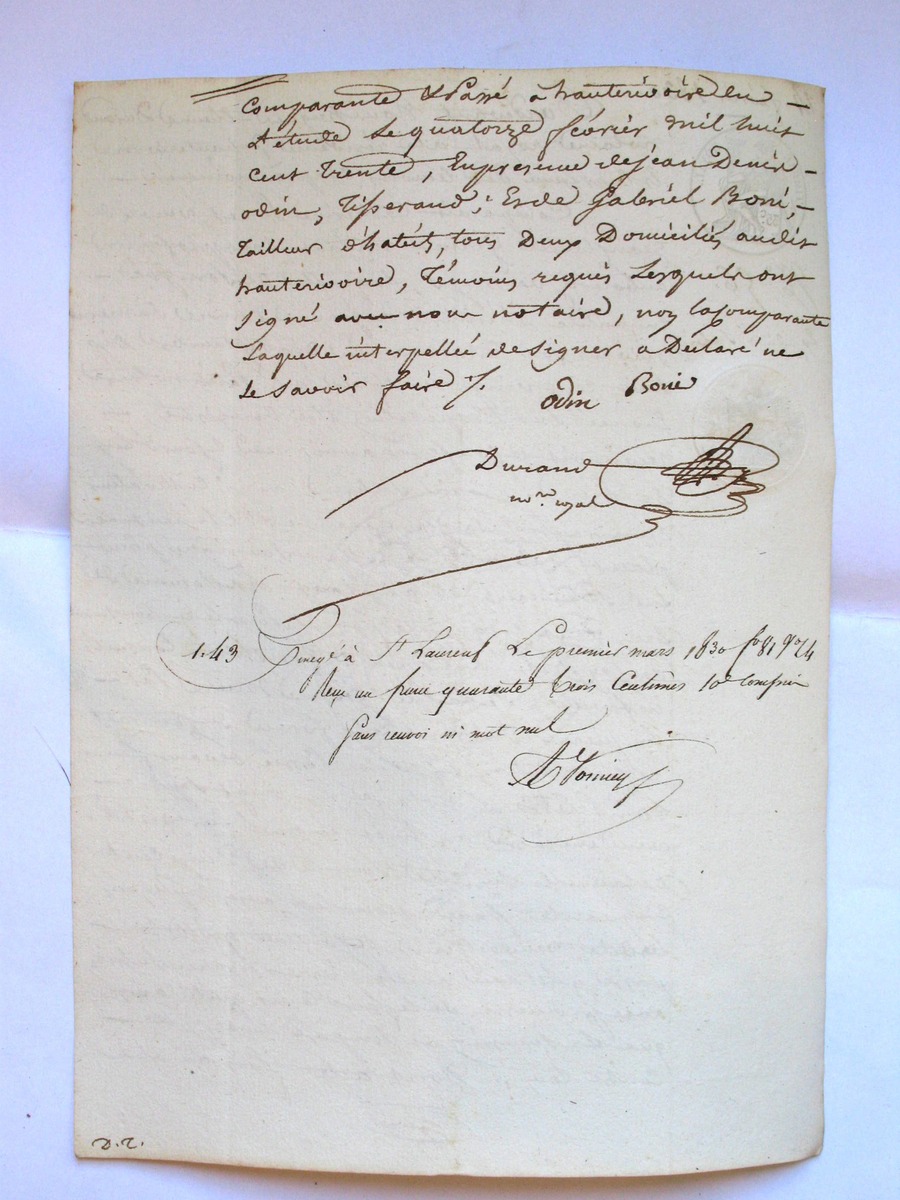 Comparante & Passé a hauterivoire en
L'étude Le quatorze février mil huit
Cent trente, En presence de jean Denis
odin, Tisserand, Et de Gabriel Boné,
Tailleur d'habits, tous Deux Domiciliés audit
hauterivoire, Témoins requis Lesquels ont
signé avec nous notaire, non la Comparante
Laquelle interpellée de signer a Déclaré ne
Le savoir faire ./.
odin Boné
Durand
no.re royal
1.43 Enregé à St Laurent Le premier mars 1830 fo 81
Reçu un franc quarante trois Centimes 10e Compris
sans renvoi ni mot nul
D.T.